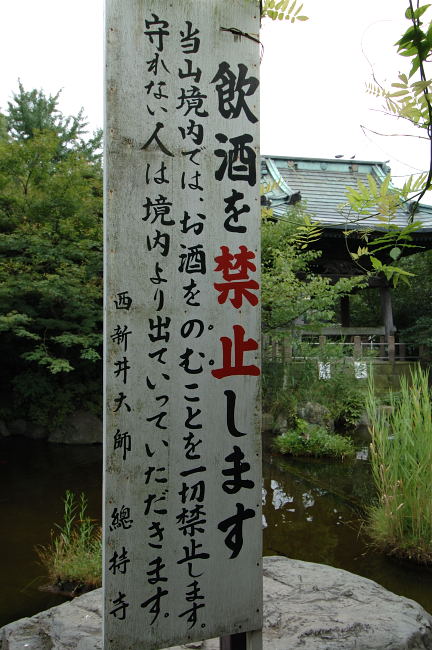 飲酒を禁止します
当山境内では、お酒をのむことを一切禁止します。
守れない人は境内より出ていっていただきます。
西新井大師 總持寺